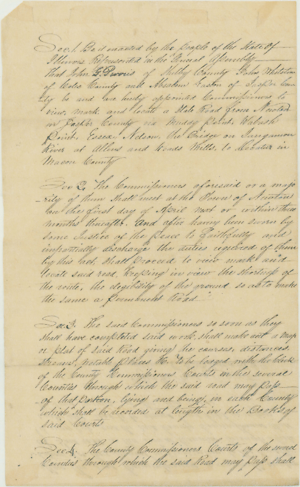 Sec 1. Be it enacted by the people of the State of
Illinois Represented in the General Assembly
That John of Shelby County
of Coles County and of Jasper Coun-
ty be and are hereby appointed Commissioners to
view, mark and locate a State Road from Newton
in Jasper County via
Point, Essex Nelson, the Bridge on Sangamon
River at Allens and Mills, to in
Macon County
Sec 2. The Commissioners aforesaid or a majo-
rity of them shall meet at the Town of Newton
on the first day of April next or within three
months thereafter. And after having been sworn by
some Justice of the peace to faithfully and
impartially discharge the duties required of them
by this act, shall proceed to view mark and
locate said road keeping in view the shortness of
the route, the eligibility of the ground so as to make
the same a permanent Road
Sec 3. The said Commissioners so soon as they
shall have completed said work shall make out a map
or plat of said Road giving the courses distances
streams, points, places &c to be lodged with the clerk
of the County Commissioners Courts in the several
Counties through which the said road may pass
of that portion, lying and being, in each County
which shall be recorded at length in the Books of
said Courts
Sec 4. The County Commissioners Courts of the several
Counties through which the said Road may pass shall